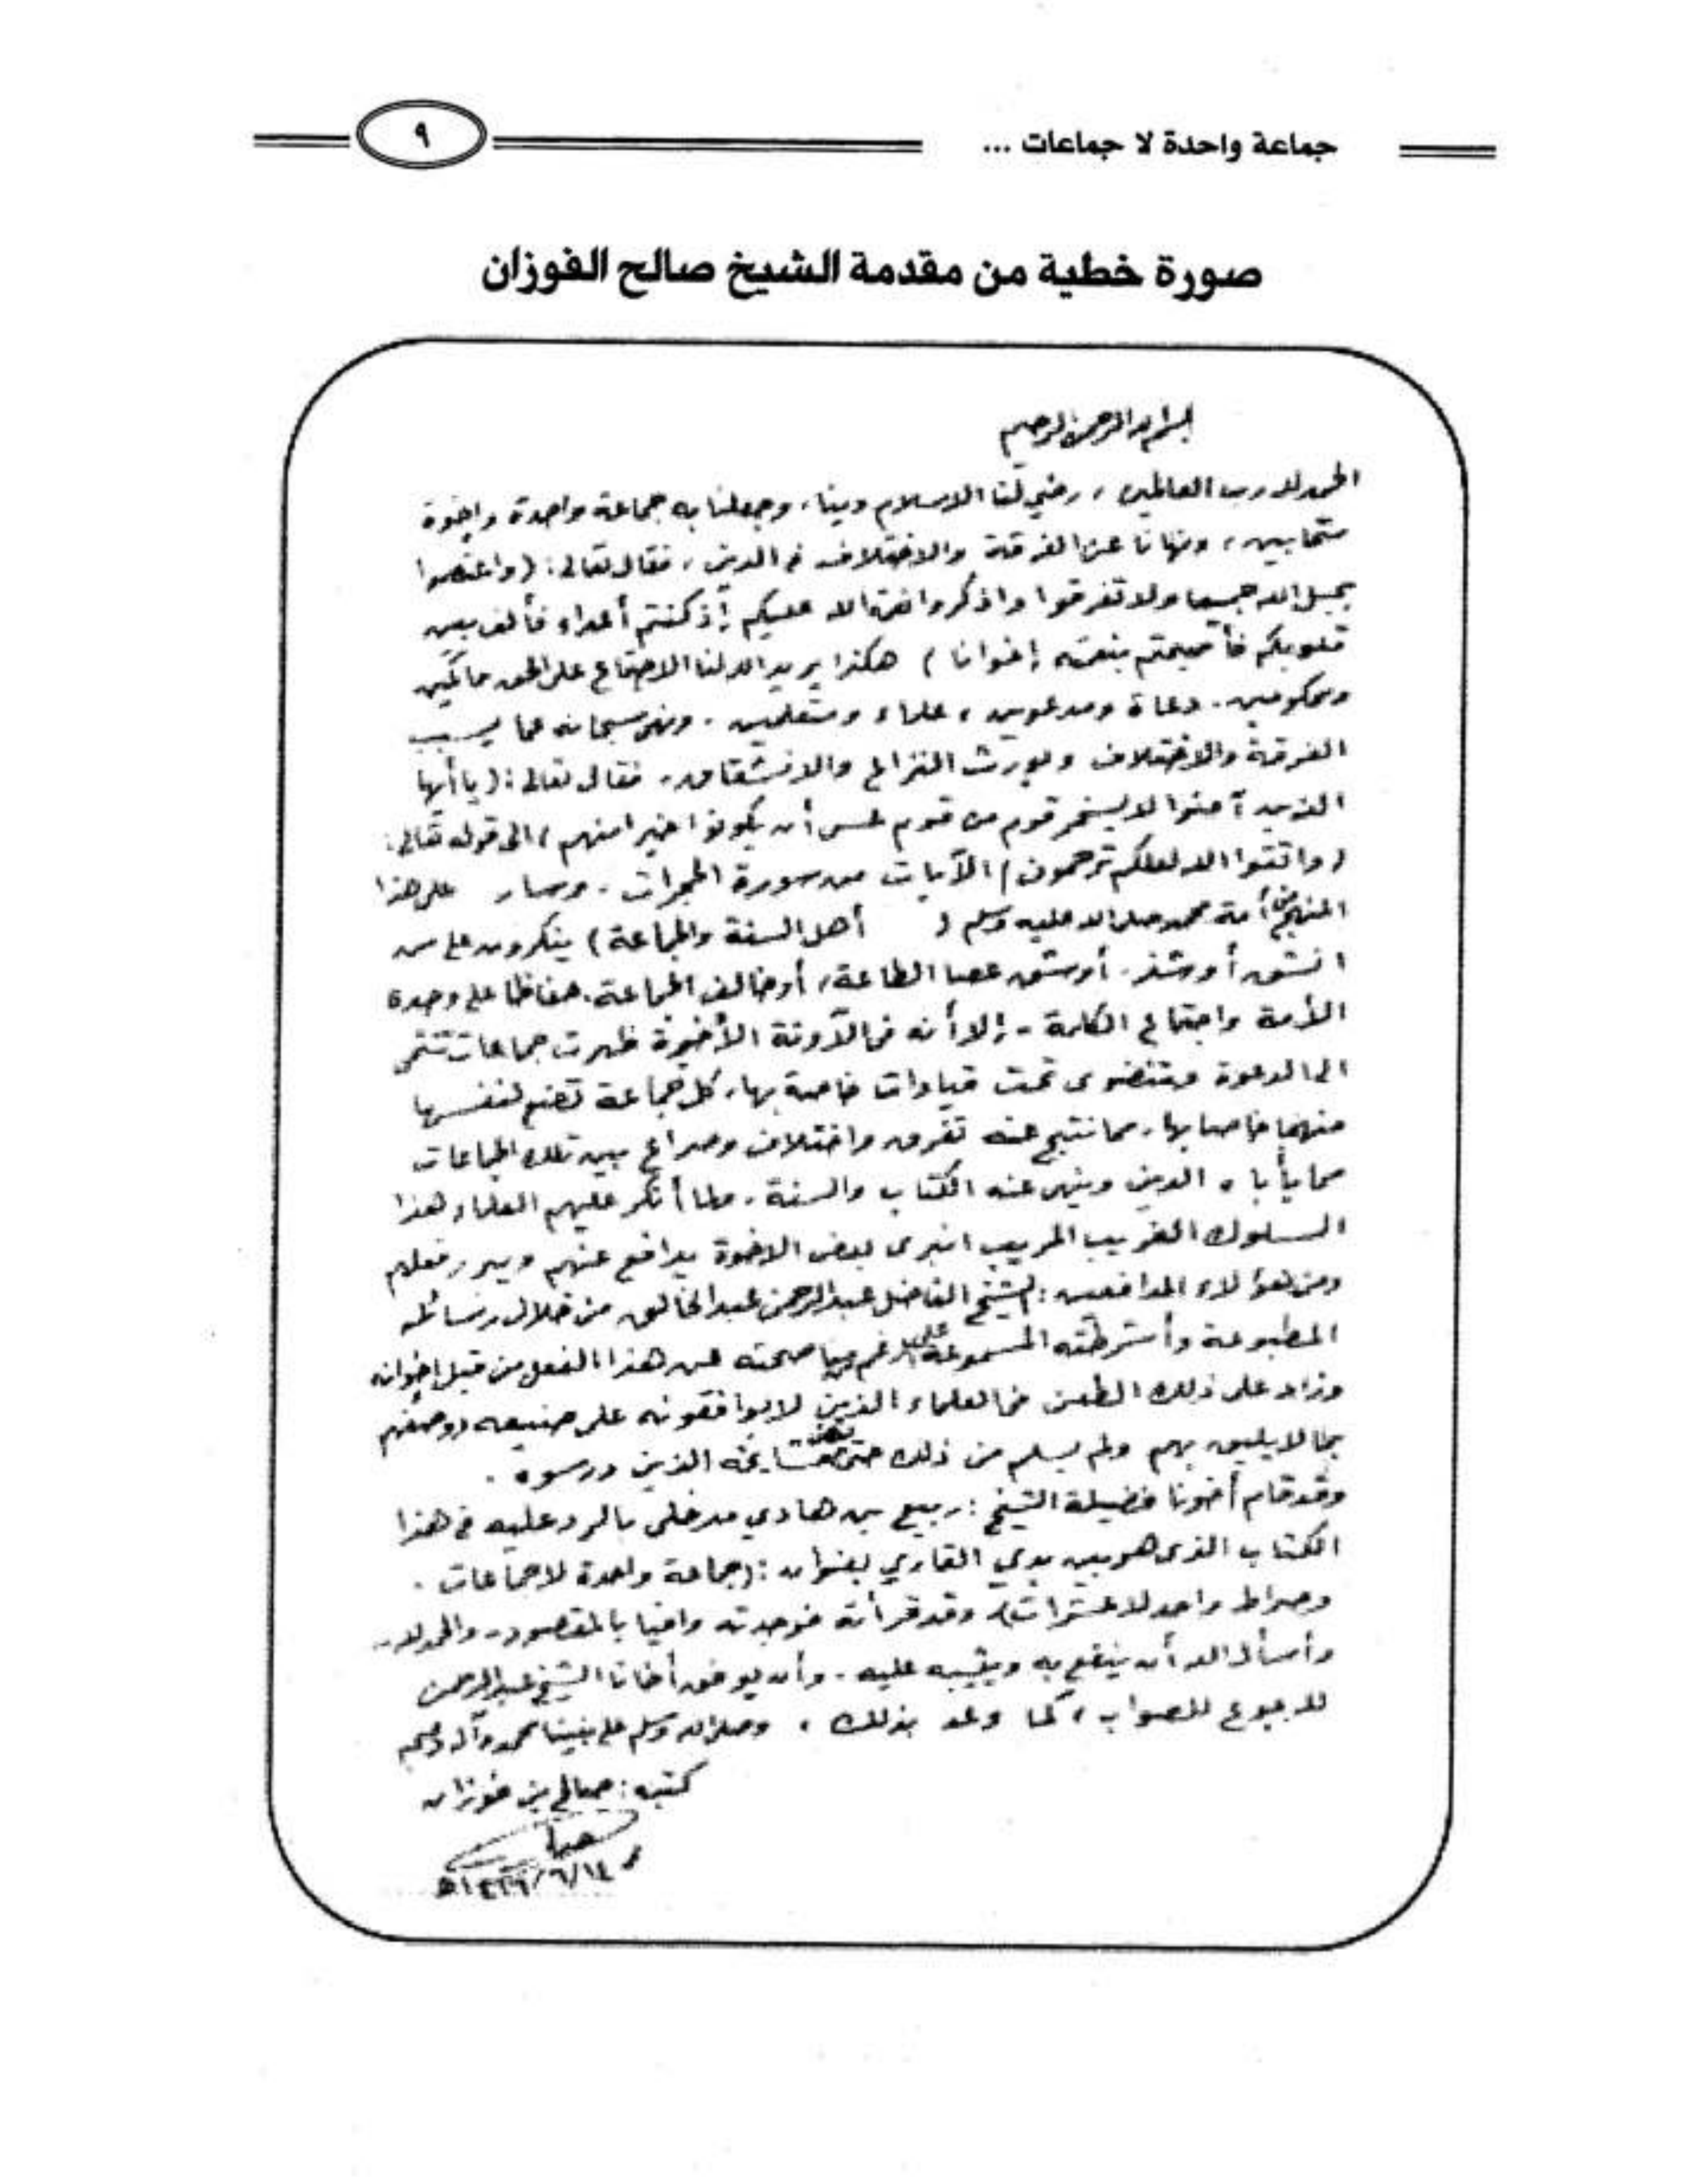 جماعة واحدة لا جماعات ...
٩
صورة خطية من مقدمة الشيخ صالح الفوزان
بسم الله الرحمن الرحيم
الحمد لله رب العالمين، رضي لنا الاسلام دينا، وجعلنا به جماعة واحدة وإخوة
متحابين، ونهانا عن الفرقة والاختلاف في الدين، فقال تعالى: (واعتصموا
بحبل الله جميعا ولا تفرقوا واذكروا نعمة الله عليكم إذ كنتم أعداء فألف بين
قلوبكم فأصبحتم بنعمته إخوانا) هكذا يريد الله لنا الاجتماع على الحق حاكمين
ومحكومين. دعاة ومدعوين، علماء ومتعلمين. ونهى سبحانه عما يسبب
الفرقة والاختلاف ويورث النزاع والانشقاق. فقال تعالى: (يا أيها
الذين آمنوا لا يسخر قوم من قوم عسى أن يكونوا خيرا منهم) الى قوله تعالى:
(واتقوا الله لعلكم ترحمون) الآيات من سورة الحجرات. وسار على هذا
المنهج من أمة محمد صلى الله عليه وسلم (أهل السنة والجماعة) ينكرون على من
انشق أو شذ. أو شق عصا الطاعة، أو خالف الجماعة. حفاظا على وحدة
الأمة واجتماع الكلمة - إلا أنه في الآونة الأخيرة ظهرت جماعات تنتمي
الى الدعوة وتنضوي تحت قيادات خاصة بها. كل جماعة تضع لنفسها
منهجا خاصا بها. مما نتج عنه تفرق واختلاف وصراع بين تلك الجماعات
مما يأباه الدين وينهى عنه الكتاب والسنة. ولما أنكر عليهم العلماء هذا
السلوك الغريب المريب انبرى بعض الاخوة يدافع عنهم ويبرر فعلهم
ومن هؤلاء المدافعين: الشيخ الفاضل عبدالرحمن عبدالخالق من خلال رسائله
المطبوعة وأشرطته المسموعة على رغم مناصحته عن هذا الفعل من قبل إخوانه
وزاد على ذلك الطعن في العلماء الذين لا يوافقونه على صنيعه ووصفهم
بما لا يليق بهم ولم يسلم من ذلك حتى بعض مشايخه الذين درسوه.
وقد قام أخونا فضيلة الشيخ: ربيع بن هادي مدخلي بالرد عليه في هذا
الكتاب الذي هو بين يدي القاري بعنوان: (جماعة واحدة لا جماعات.
وصراط واحد لا عشرات). وقد قرأته فوجدته وافيا بالمقصود. والحمد لله.
وأسأل الله أن ينفع به ويثيبه عليه. وأن يوفق أخانا الشيخ عبدالرحمن
للرجوع للصواب، كما وعد بذلك، وصلى الله وسلم على نبينا محمد وآله وصحبه
كتبه: صالح بن فوزان